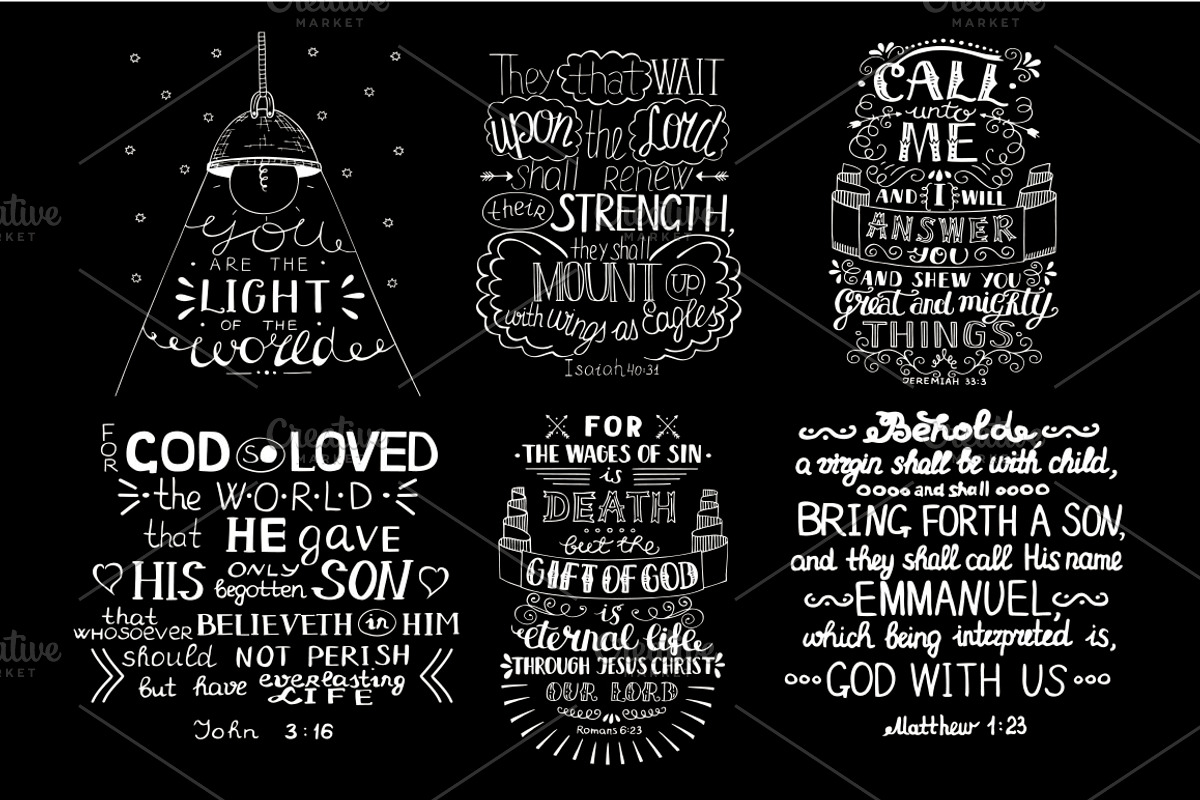 you
ARE THE
LIGHT
OF THE
world
They that WAIT
upon the Lord
shall renew
their STRENGTH,
they shall
MOUNT up
with wings as Eagles
Isaiah 40:31
CALL
unto
ME
AND I WILL
ANSWER
YOU
AND SHEW YOU
Great and mighty
THINGS
JEREMIAH 33:3
FOR GOD so LOVED
the W·O·R·L·D
that HE gave
HIS ONLY begotten SON
that whosoever BELIEVETH in HIM
should NOT PERISH
but have everlasting LIFE
John 3:16
FOR
· THE WAGES OF SIN ·
is
DEATH
but the
GIFT OF GOD
is
eternal life
THROUGH JESUS CHRIST
OUR LORD
Romans 6:23
Behold,
a virgin shall be with child,
and shall
BRING FORTH A SON,
and they shall call His name
EMMANUEL,
which being interpreted is,
GOD WITH US
Matthew 1:23
Creative
MARKET
Creative
MARKET
Creative
MARKET
Creative
MARKET
Creative
MARKET
Creative
MARKET
Creative
MARKET
Creative
MARKET